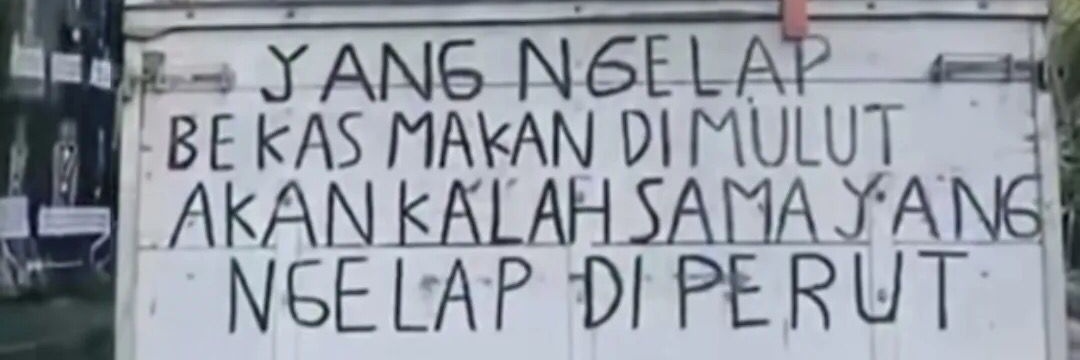 YANG NGELAP
BEKAS MAKAN DI MULUT
AKAN KALAH SAMA YANG
NGELAP DI PERUT